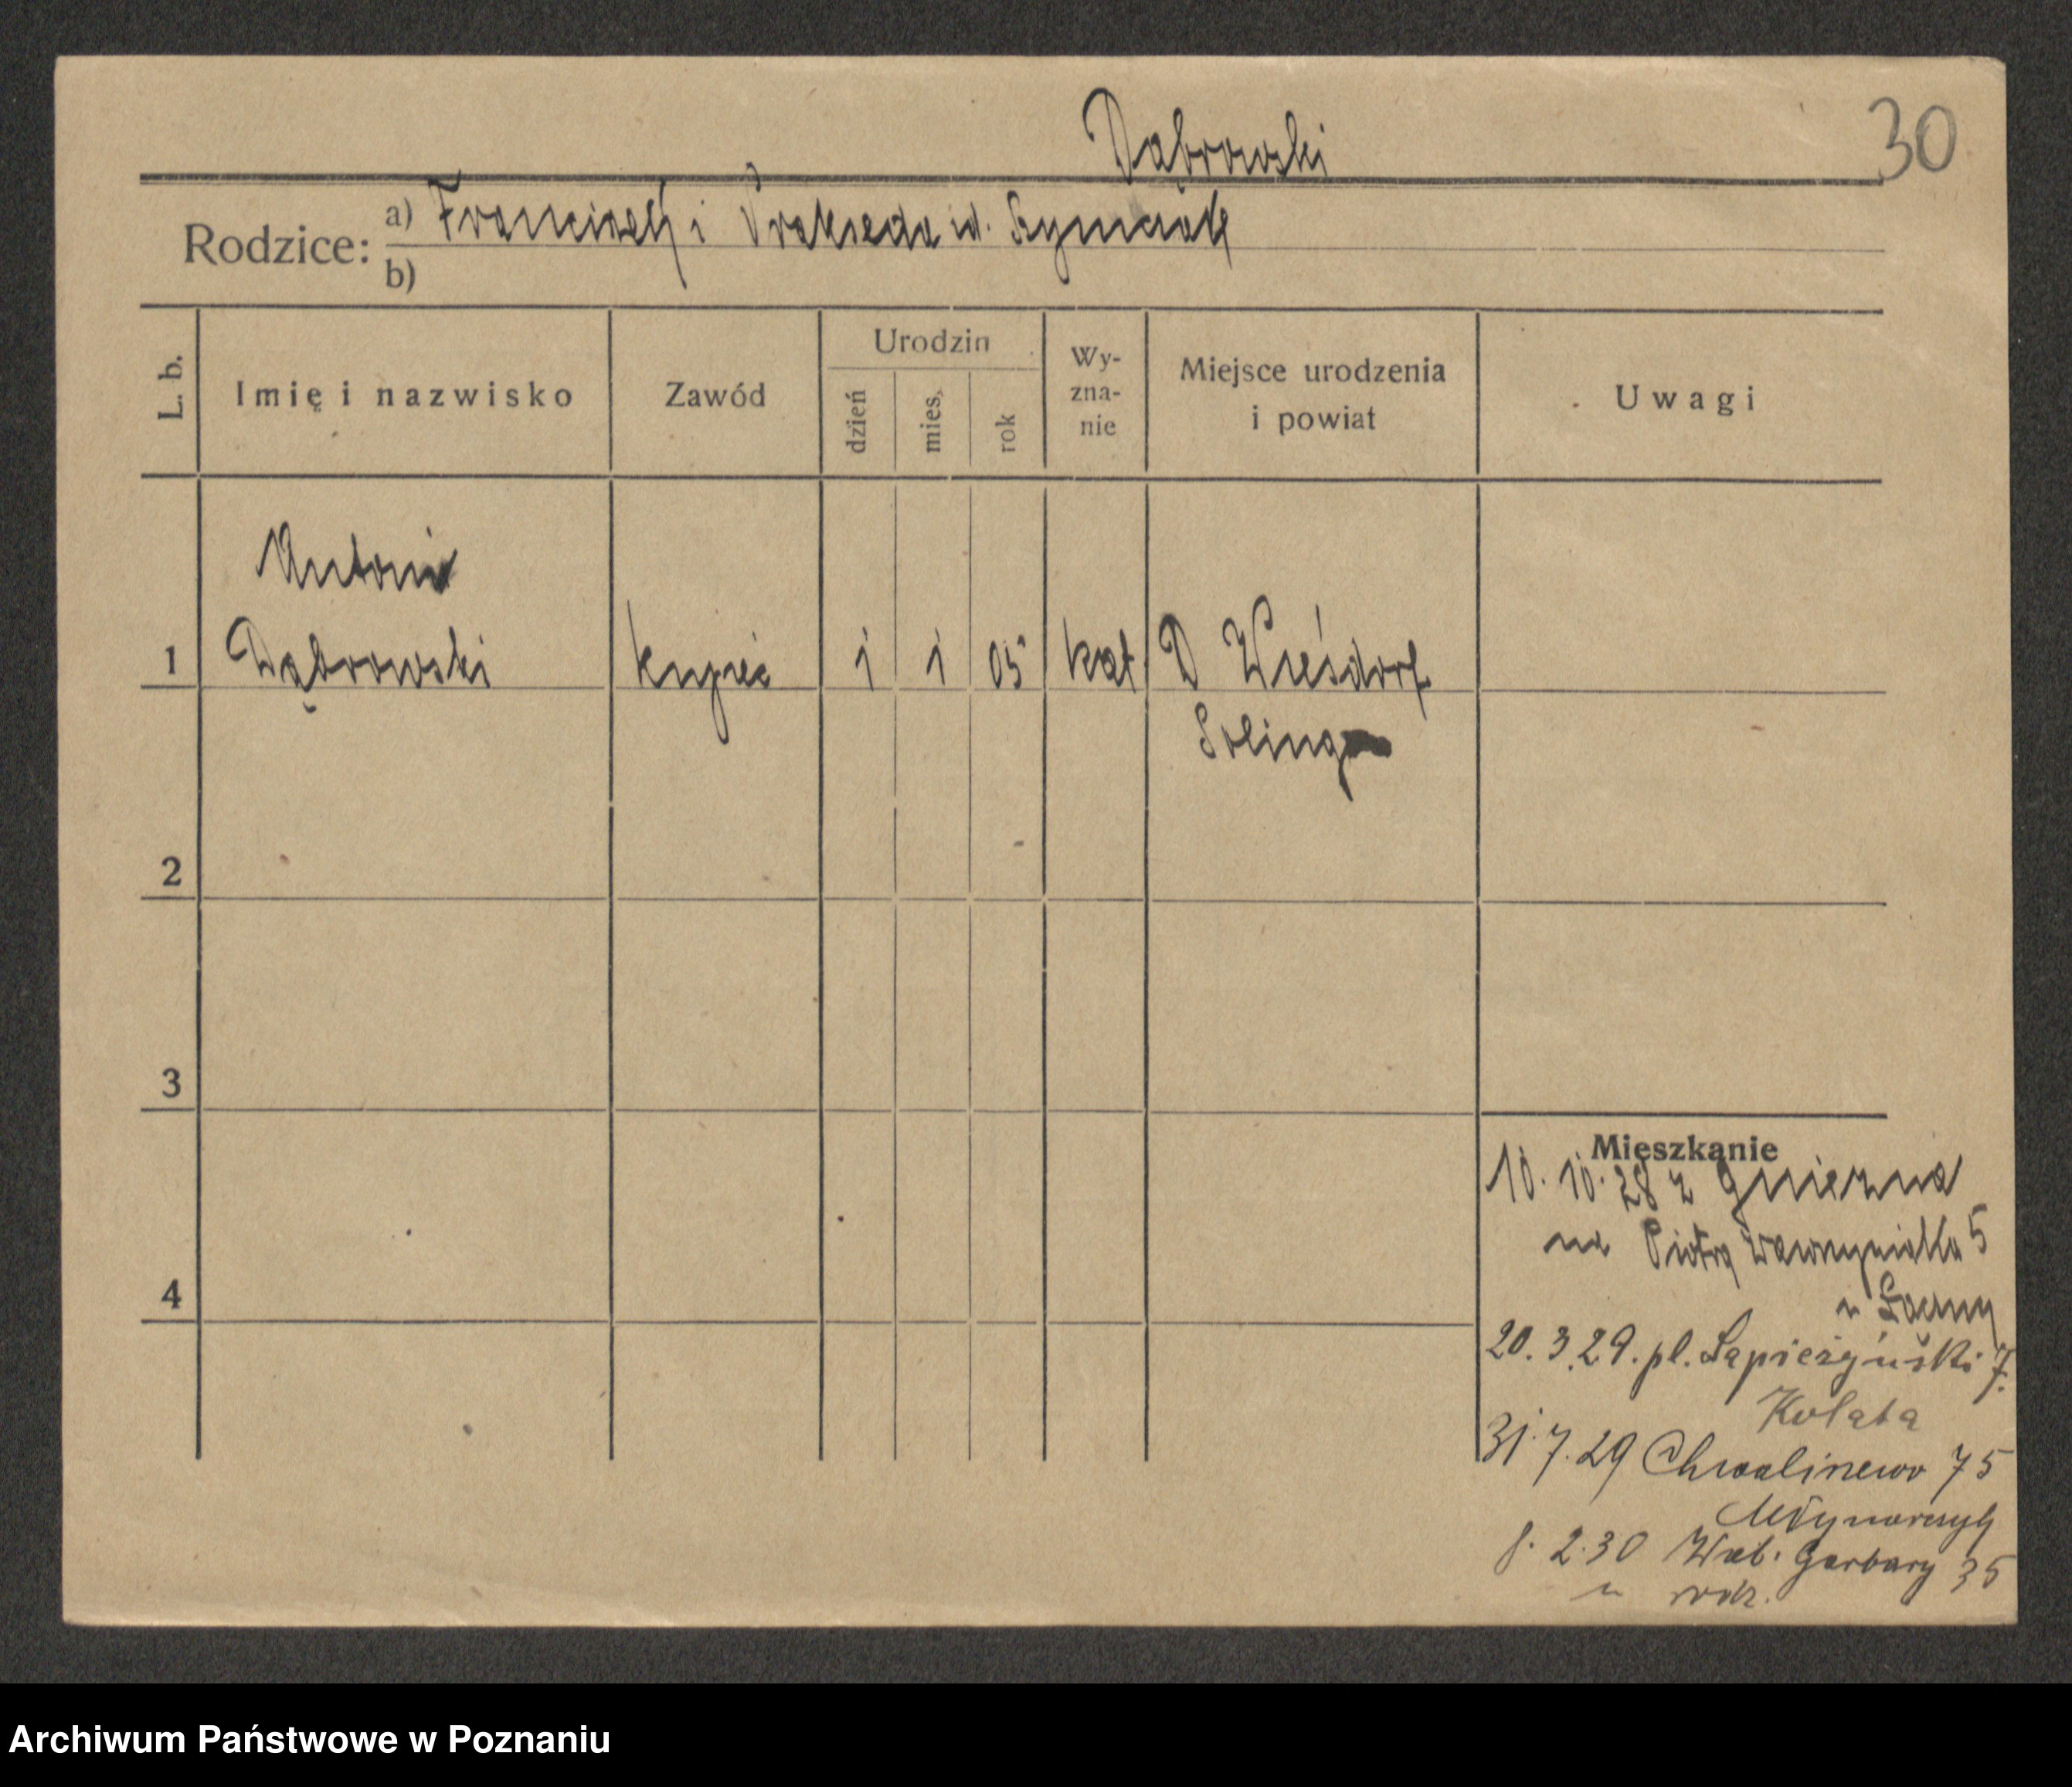 Dąbrowski
30
Rodzice: a) Franciszek i Prakseda id. Szymciak
b)
L. b. Imię i nazwisko Zawód Urodzin dzień mies. rok Wy-zna-nie Miejsce urodzenia i powiat Uwagi
Antoni
1 Dąbrowski kupiec 1 1 05 kat D Wiesdorf
Solingen
2
3
Mieszkanie
10. 10. 28 z Gniezna
na Piotra Wawrzyniaka 5
4
20. 3. 29. pl. Sapieżyński 7.
31. 7. 29 Chwalinewo 75
Młynarczyk
8. 2. 30 Wielk. Garbary 35
u rodz.
Archiwum Państwowe w Poznaniu